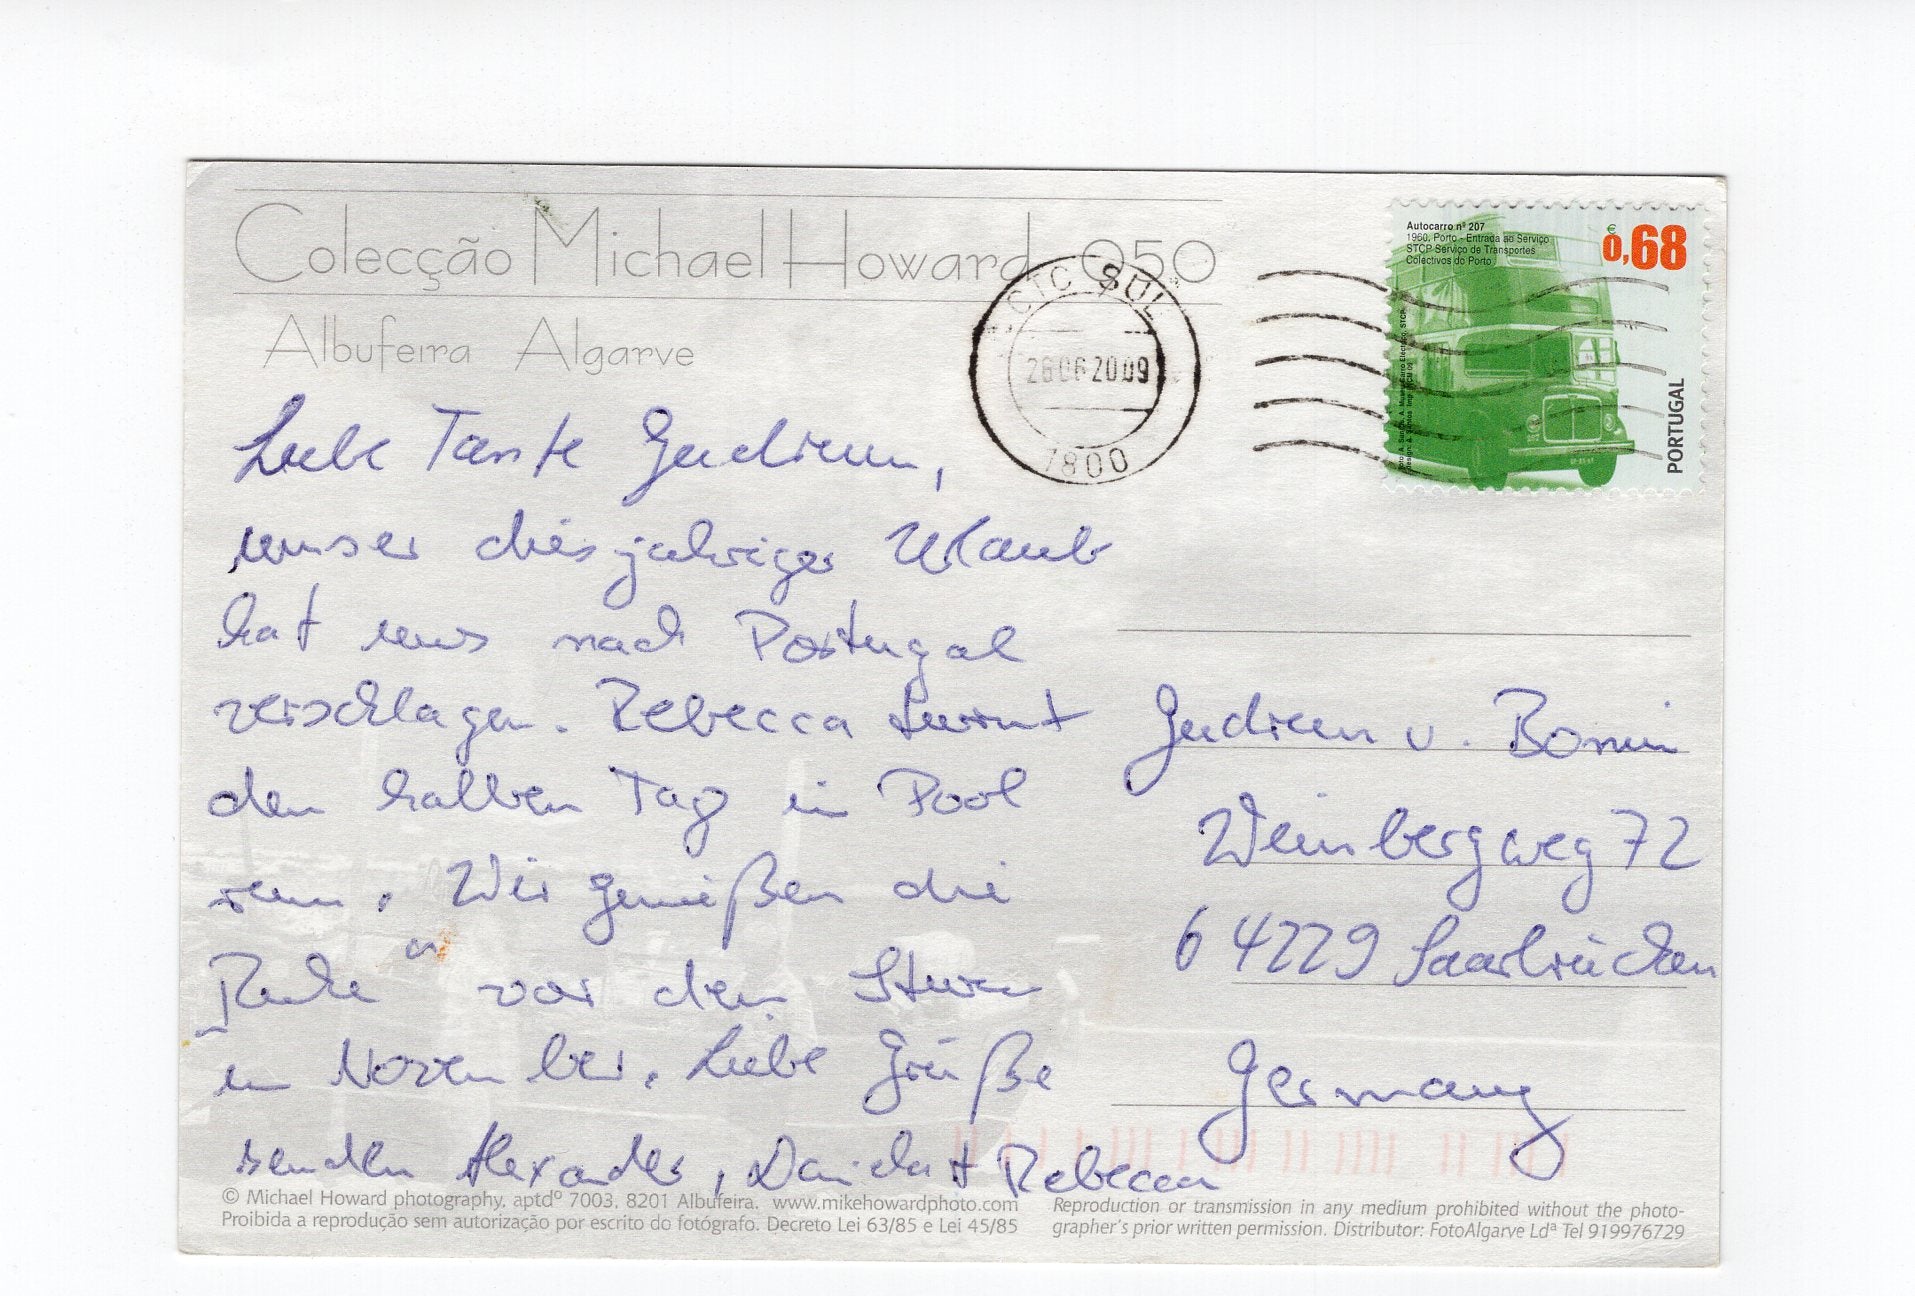 Colecção Michael Howard 050
Albufeira Algarve
CTC SUL
26062009
1800
Autocarro nº 207
1960, Porto - Entrada ao Serviço
STCP Serviço de Transportes
Colectivos do Porto
€
0,68
PORTUGAL
Liebe Tante Gudrun,
unser diesjähriger Urlaub
hat uns nach Portugal
verschlagen. Rebecca
den halben Tag im Pool
rum. Wir genießen die
„Ruhe" vor dem Sturm
im November. Liebe Grüße
senden Alexander, Daniela + Rebecca
Gudrun v. Bonin
Weinbergweg 72
64229 Saarbrücken
Germany
© Michael Howard photography. aptdº 7003, 8201 Albufeira. www.mikehowardphoto.com
Proibida a reprodução sem autorização por escrito do fotógrafo. Decreto Lei 63/85 e Lei 45/85
Reproduction or transmission in any medium prohibited without the photo-
grapher's prior written permission. Distributor: FotoAlgarve Ldª Tel 919976729